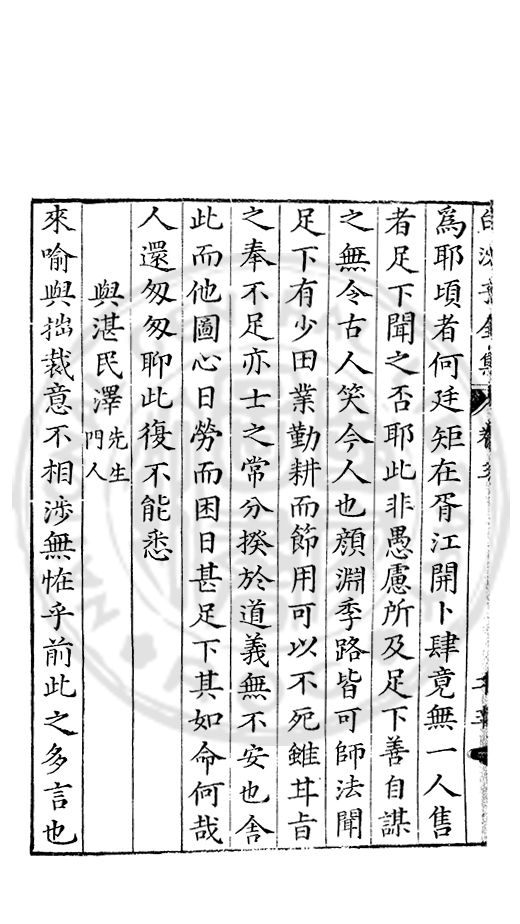 爲耶頃者何廷矩在胥江開卜肆竟無一人售
者足下聞之否耶此非愚慮所及足下善自謀
之無令古人笑今人也顔淵季路皆可師法聞
足下有少田業勤耕而節用可以不死雖甘旨
之奉不足亦士之常分揆於道義無不安也舍
此而他圖心日勞而困日甚足下其如命何哉
人還匆匆聊此復不能悉
與湛民澤先生門人
來喻與拙裁意不相涉無恠乎前此之多言也